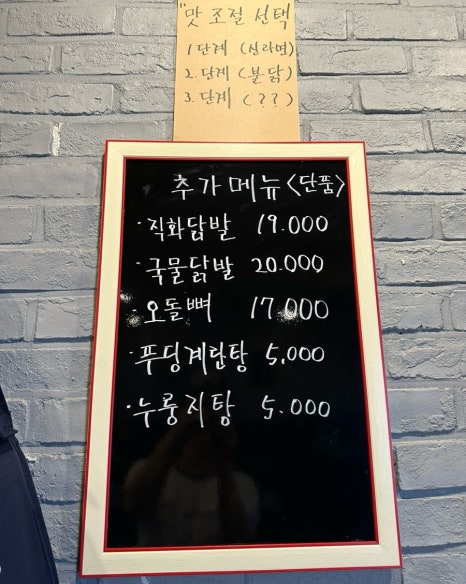 "맛 조절 선택
1단계 (신라면)
2.단계 (불닭)
3.단계 (??)
추가메뉴<단품>
·직화닭발 19.000
·국물닭발 20.000
·오돌뼈 17.000
·푸딩계란탕 5.000
·누룽지탕 5.000